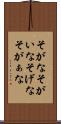 そがなそが
いなそげな
そがぁな